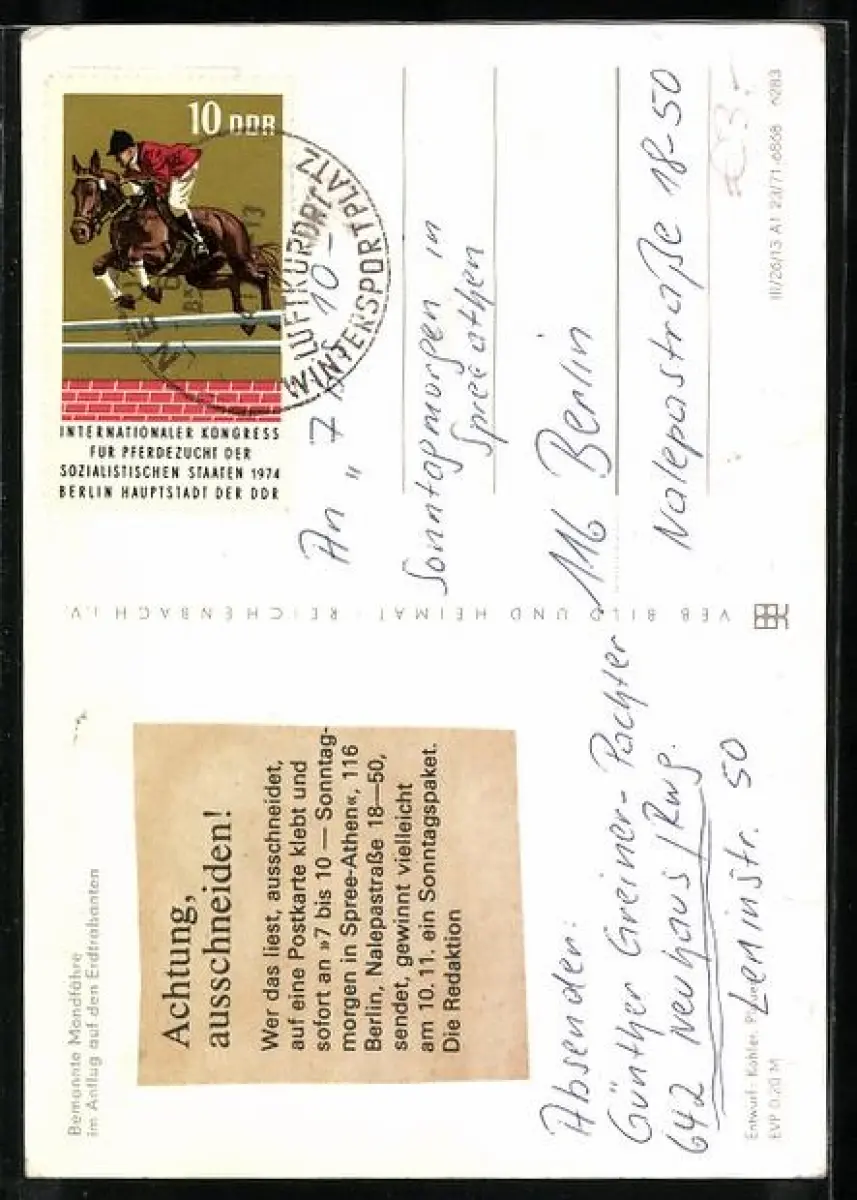 Bemannte Mondfähre
im Anflug auf den Erdtrabanten
Achtung,
ausschneiden!
Wer das liest, ausschneidet,
auf eine Postkarte klebt und
sofort an »7 bis 10 — Sonntag-
morgen in Spree-Athen«, 116
Berlin, Nalepastraße 18—50,
sendet, gewinnt vielleicht
am 10. 11. ein Sonntagspaket.
Die Redaktion
Absender:
Günther Greiner-Pachter
642 Neuhaus/Rwg.
Leninstr. 50
Entwurf: Kohler,
EVP 0.20 M
VEB BILD UND HEIMAT REICHENBACH i.V.
10 DDR
INTERNATIONALER KONGRESS
FÜR PFERDEZUCHT DER
SOZIALISTISCHEN STAATEN 1974
BERLIN HAUPTSTADT DER DDR
LUFTKURORT
WINTERSPORTPLATZ
An „7 10 -
Sonntagmorgen in
Spreeathen
116 Berlin
Nalepastraße 18-50
III/26/13 A1 23/71 6868 6283